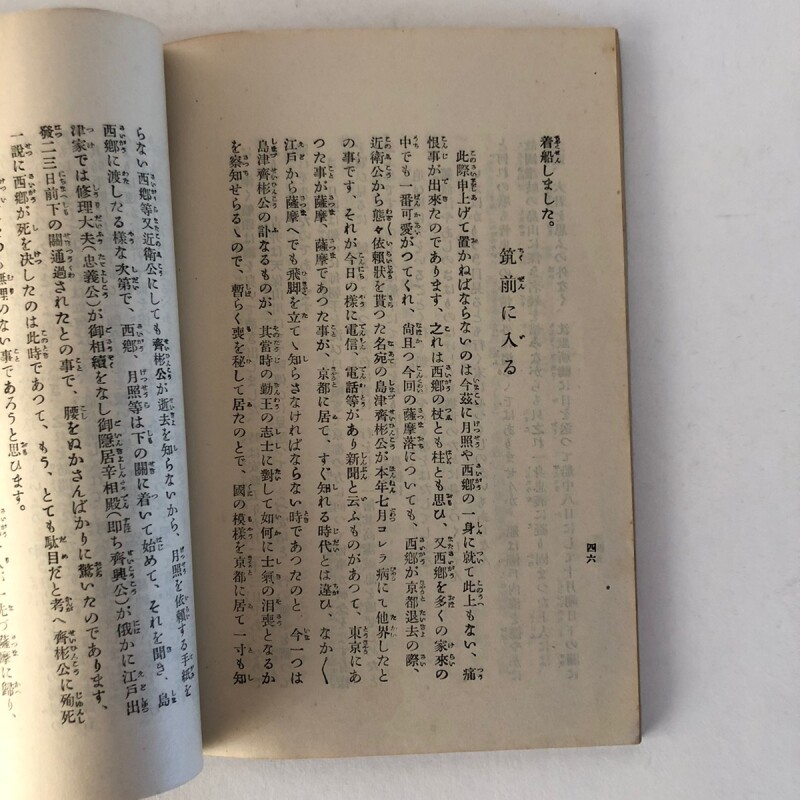 着船しました。
筑前に入る
此際申上げて置かねばならないのは今茲に月照や西郷の一身に就て此上もない、痛
恨事が出來たのであります、之れは西郷の杖とも柱とも思ひ、又西郷を多くの家來の
中でも一番可愛がつてくれ、尚且つ今回の薩摩落についても、西郷が京都退去の際、
近衛公から態々依頼狀を貰つた名宛の島津齊彬公が本年七月コレラ病にて他界したと
の事です、それが今日の様に電信、電話等があり新聞と云ふものがあつて、東京にあ
つた事が薩摩、薩摩であつた事が、京都に居て、すぐ知れる時代とは違ひ、なか〱
江戸から薩摩へでも飛脚を立てゝ知らさなければならない時であつたのと、今一つは
島津齊彬公の訃なるものが、其當時の勤王の志士に對して如何に士氣の沮喪となるか
を察知せらるゝので、暫らく喪を秘して居たのとで、國の模様を京都に居て一寸も知
四六
らない西郷等又近衛公にしても齊彬公が逝去を知らないから、月照を依頼する手紙を
西郷に渡したる様な次第で、西郷、月照等は下の關に着いて始めて、それを聞き、島
津家では修理大夫(忠義公)が御相續をなし御隱居宰相殿(即ち齊興公)が俄かに江戸出
發二三日前下の關通過されたとの事で、腰をぬかさんばかりに驚いたのであります、
一説に西郷が死を決したのは此時であつて、もう、とても駄目だと考へ齊彬公に殉死
無理のない事であろうと思ひます。
薩摩に歸り、